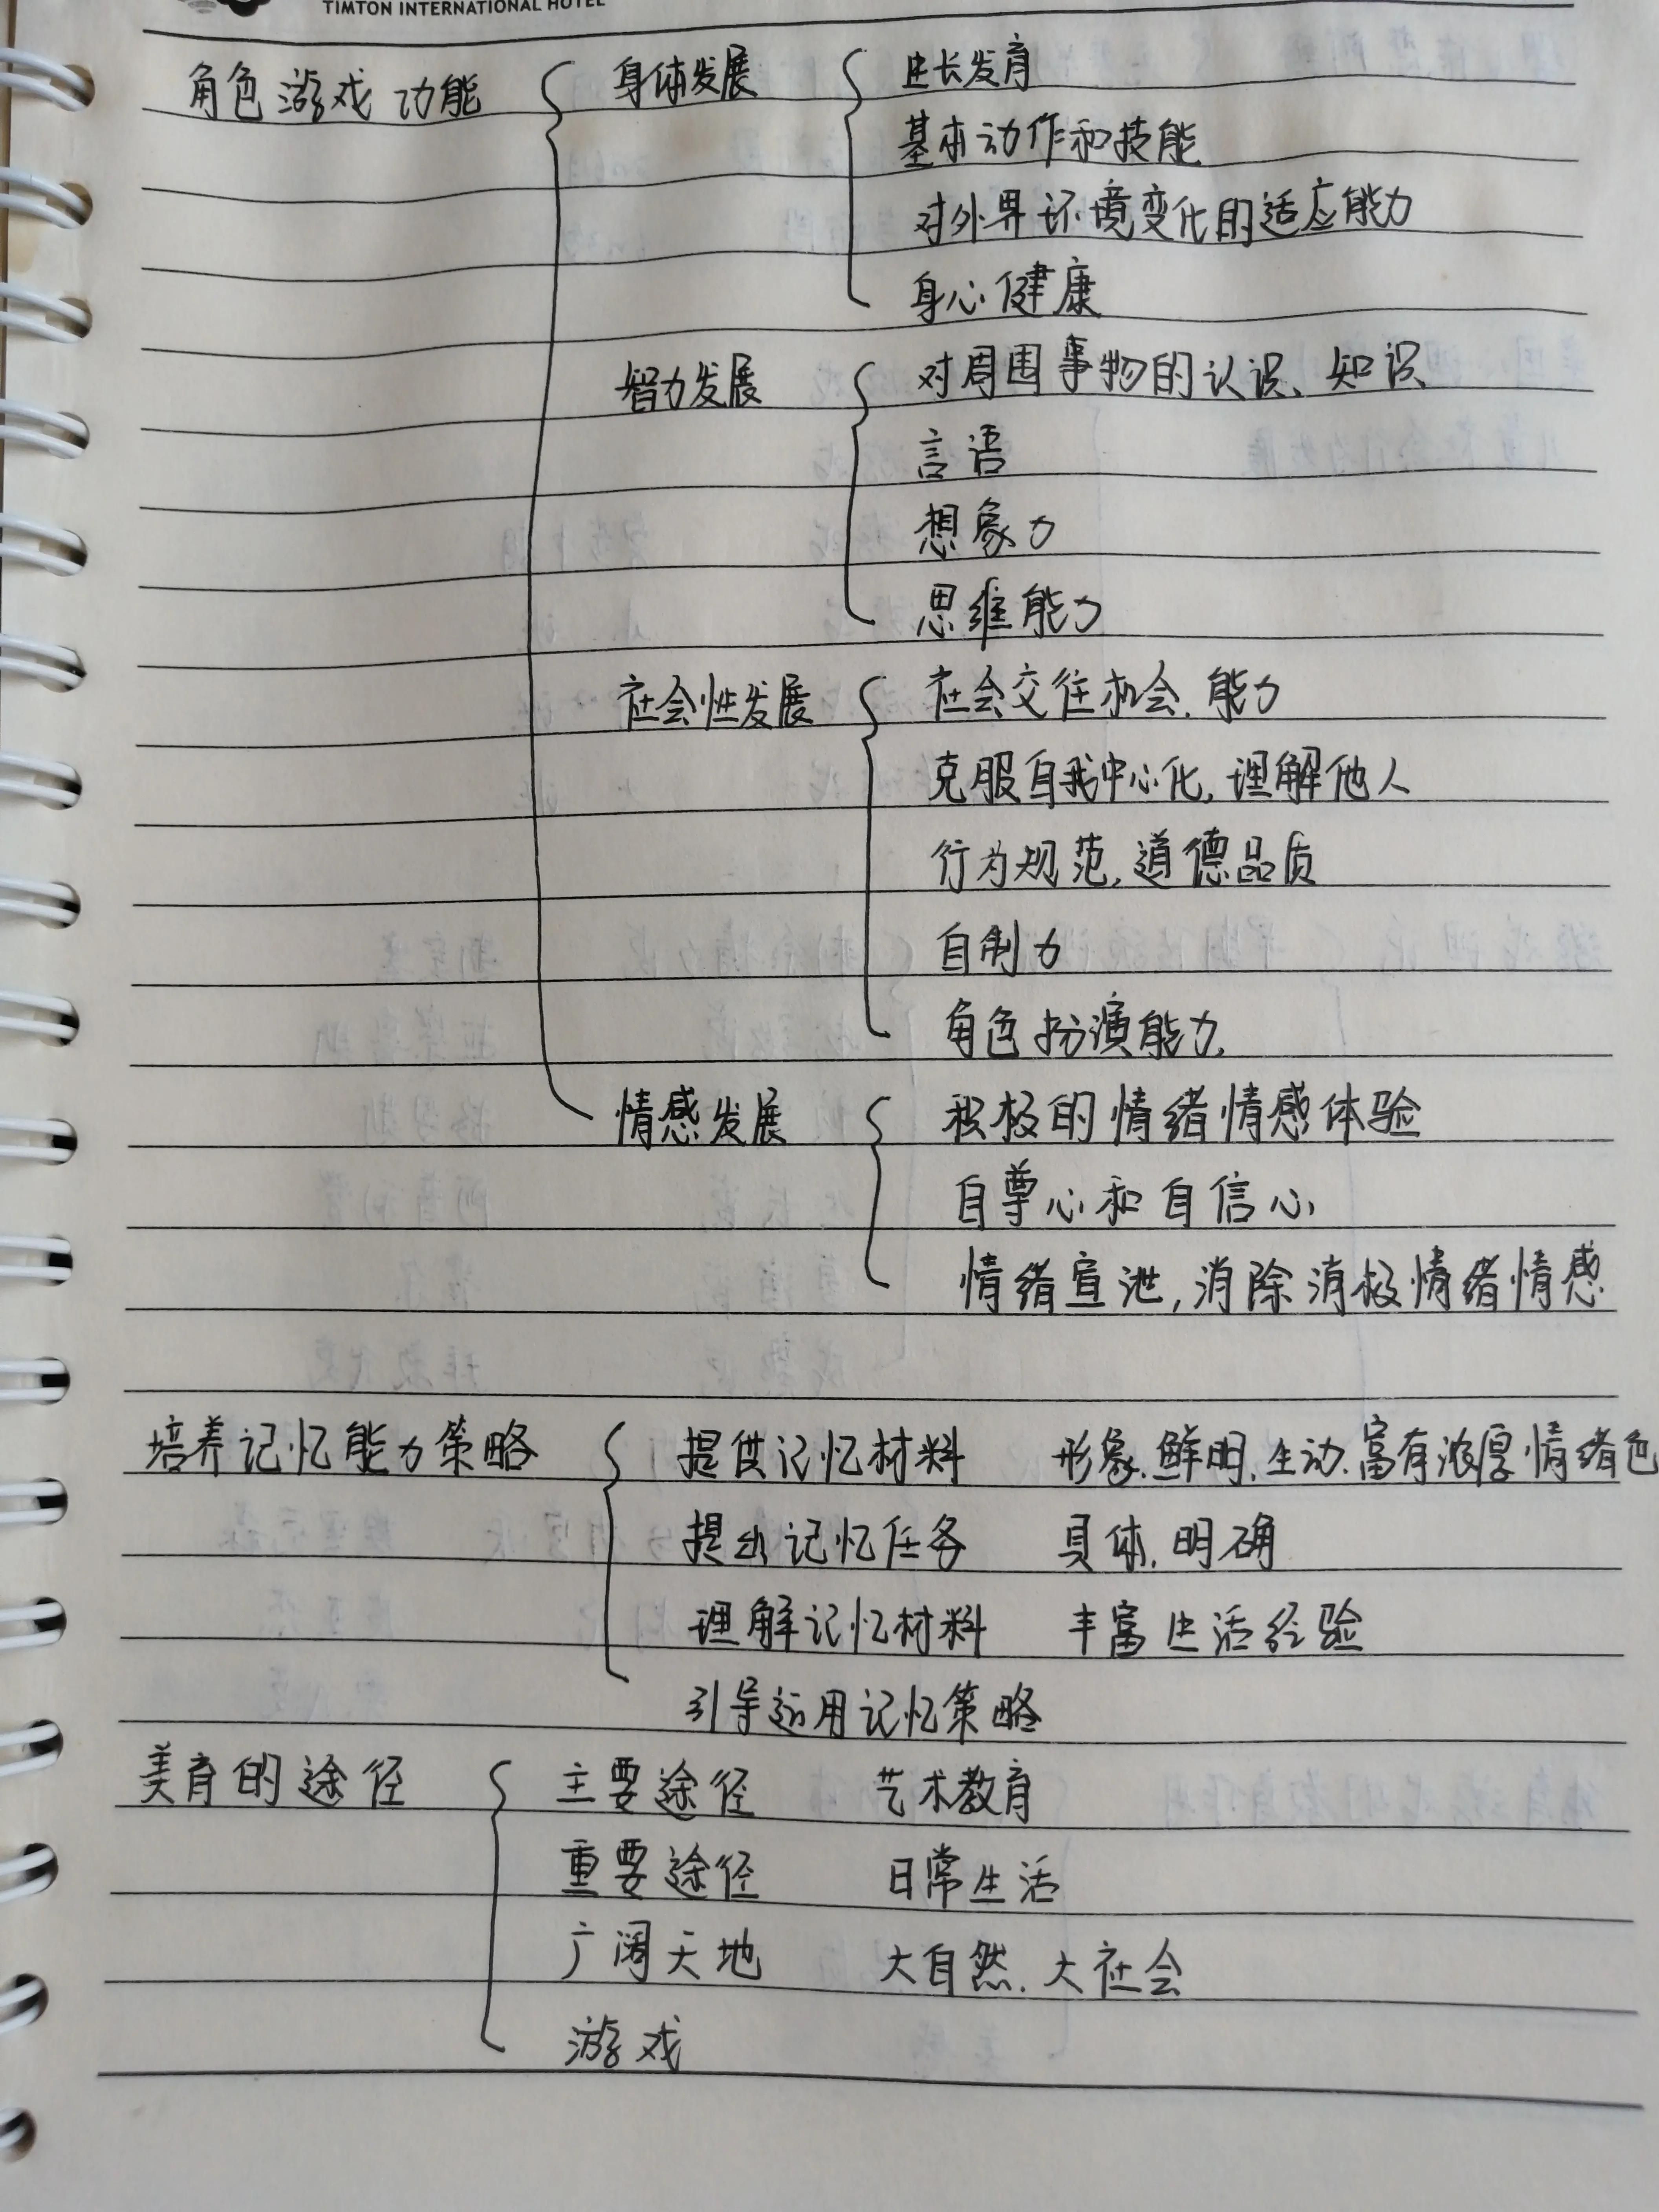 TIMTON INTERNATIONAL HOTEL
角色游戏功能 身体发展 生长发育
基本动作和技能
对外界环境变化的适应能力
身心健康
智力发展 对周围事物的认识、知识
言语
想象力
思维能力
社会性发展 社会交往机会、能力
克服自我中心化,理解他人
行为规范,道德品质
自制力
角色扮演能力
情感发展 积极的情绪情感体验
自尊心和自信心
情绪宣泄,消除消极情绪情感
培养记忆能力策略 提供记忆材料 形象、鲜明、生动、富有浓厚情绪色
提出记忆任务 具体、明确
理解记忆材料 丰富生活经验
引导运用记忆策略
美育的途径 主要途径 艺术教育
重要途径 日常生活
广阔天地 大自然、大社会
游戏